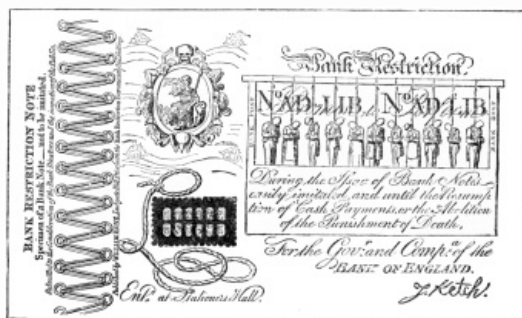 BANK RESTRICTION NOTE
Specimen of a Bank Note not to be imitated.
Bank Restriction.
No. AD LIB. No. AD LIB.
During the Issue of Bank Notes
easily imitated, and until the Resump-
tion of Cash Payments, or the Abolition
of the Punishment of Death,
For the Govr. and Compa. of the
BANK OF ENGLAND.
J. Ketch.
Entd. at Stationers Hall.